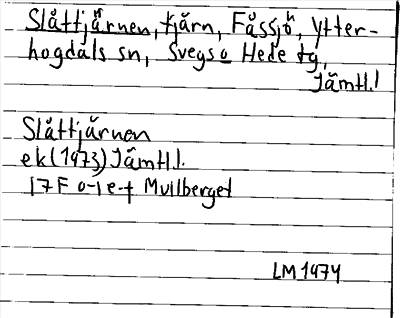 Slåttjärnen, tjärn, Fåssjö, Ytter-
hogdals sn, Svegs o Hede tg,
Jämtl. l
Slåttjärnen
ek (1973) Jämtl. l.
17F 0-1 e-f Mullberget
LM 1974